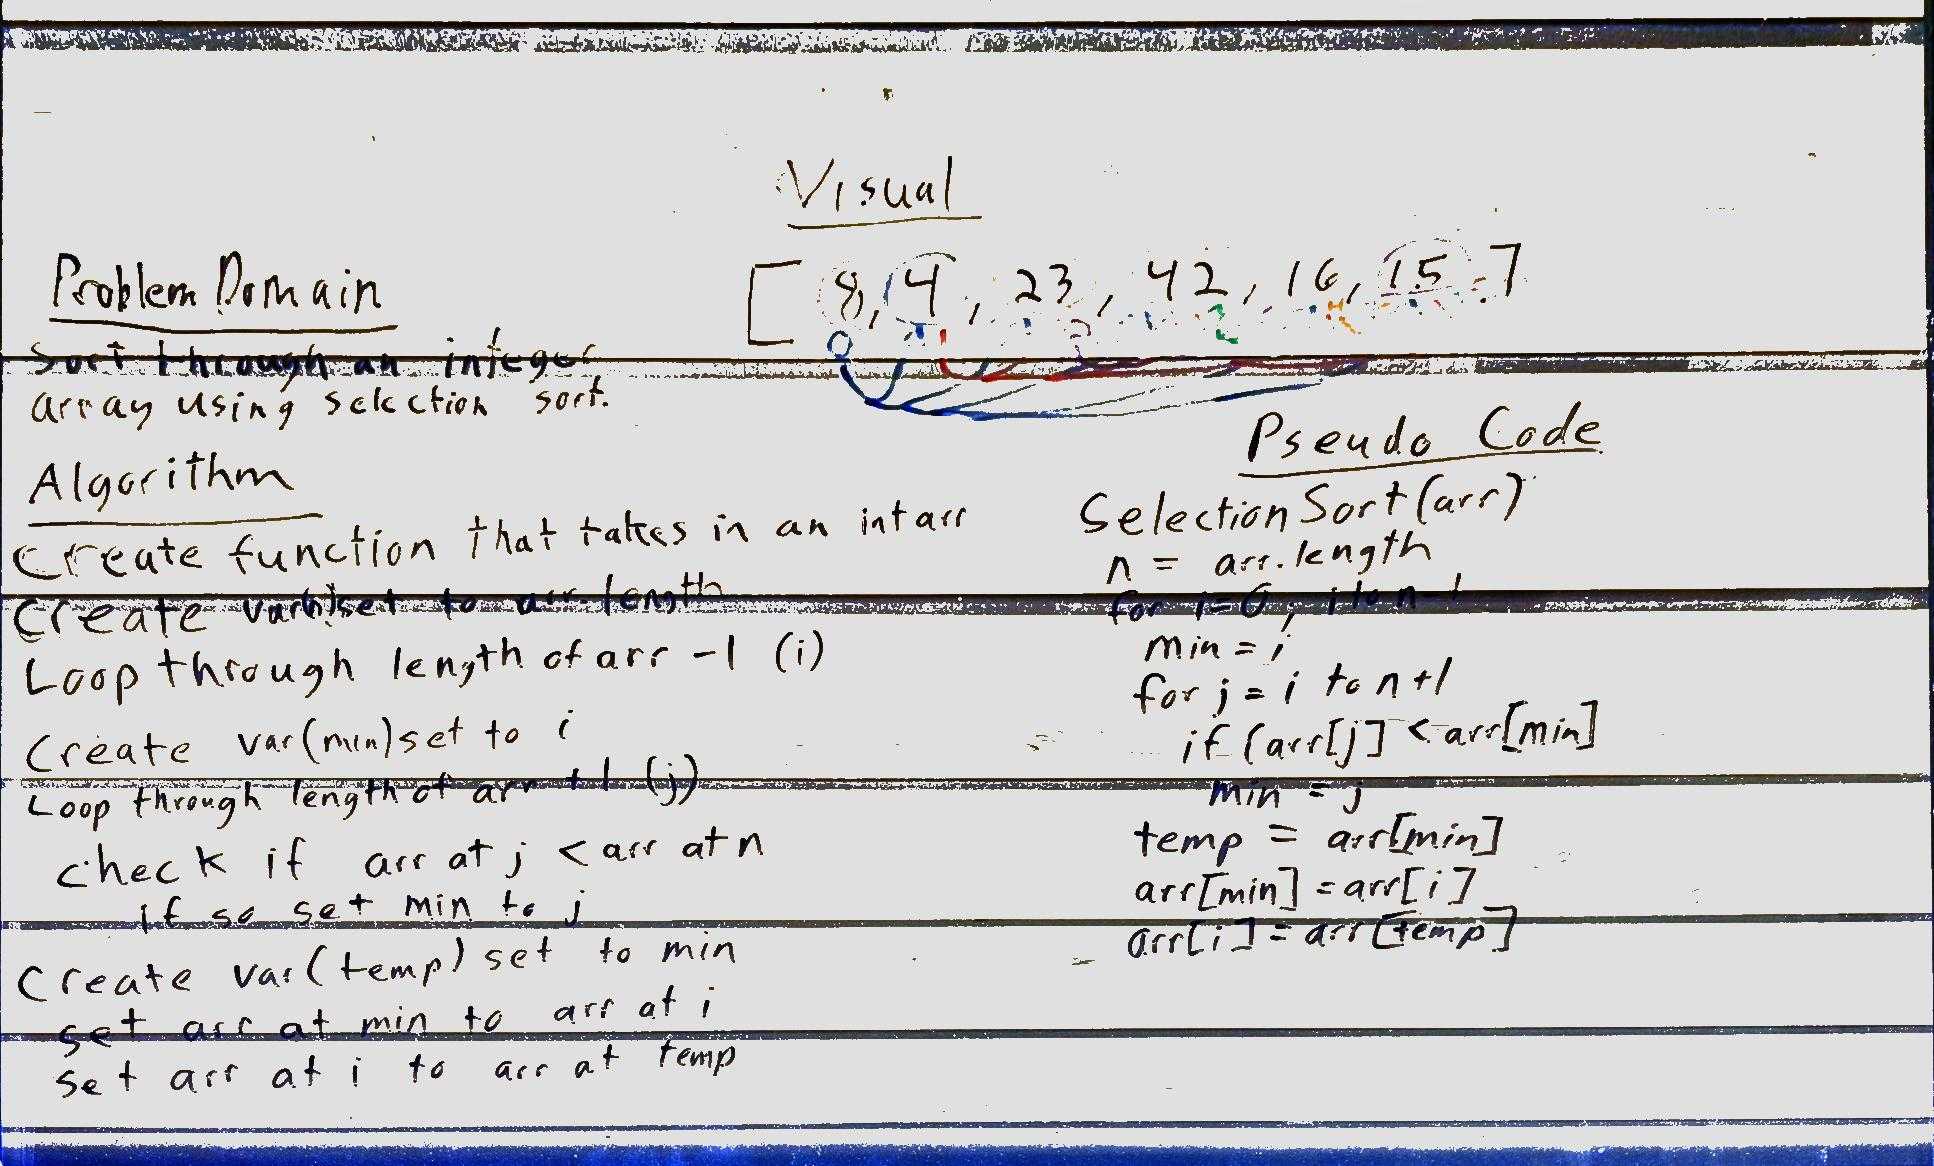 Visual
[8, 4, 23, 42, 16, 15]
Problem Domain
Sort through an integer
array using selection sort.
Algorithm
Create function that takes in an int arr
Create var(n) set to arr.length
Loop through length of arr -1 (i)
Create var(min) set to i
Loop through length of arr +1 (j)
check if arr at j < arr at n
if so set min to j
Create var(temp) set to min
set arr at min to arr at i
set arr at i to arr at temp
Pseudo Code
Selection Sort(arr)
n = arr.length
for i=0, i to n-1
min = i
for j = i to n+1
if (arr[j] < arr[min]
min = j
temp = arr[min]
arr[min] = arr[i]
arr[i] = arr[temp]